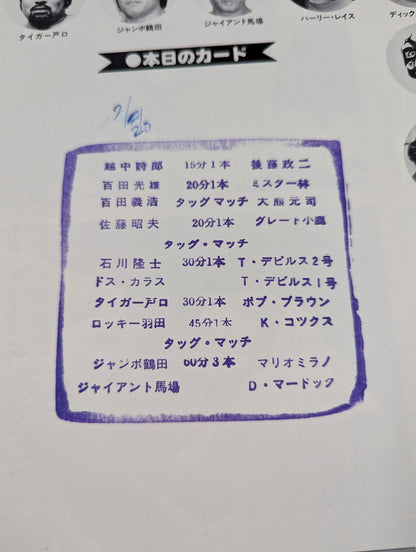 タイガー戸口
ジャンボ鶴田
ジャイアント馬場
ハーリー・レイス
ディック
●本日のカード
越中詩郎 15分1本 後藤政二
百田光雄 20分1本 ミスター林
百田義浩 タッグマッチ 大熊元司
佐藤昭夫 20分1本 グレート小鹿
タッグ・マッチ
石川隆士 30分1本 T・デビルス2号
ドス・カラス T・デビルス1号
タイガー戸口 30分1本 ボブ・ブラウン
ロッキー羽田 45分1本 K・コックス
タッグ・マッチ
ジャンボ鶴田 60分3本 マリオミラノ
ジャイアント馬場 D・マードック